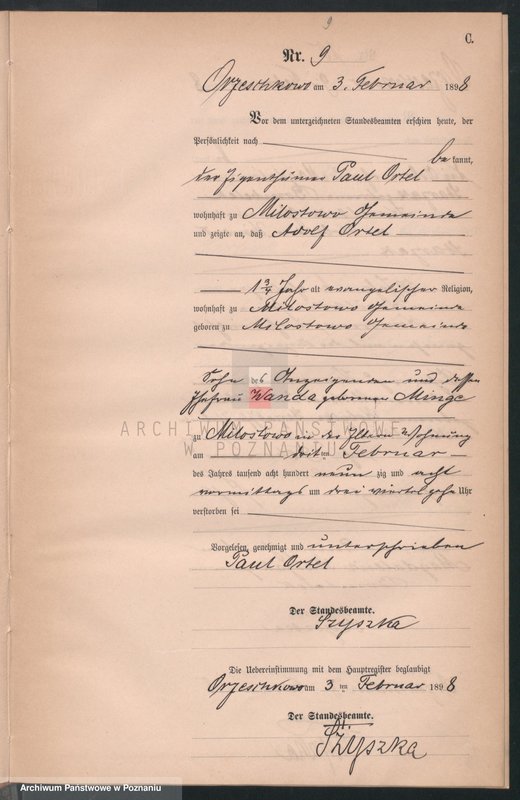 9
C.
Nr. 9
Orzeschkowo am 3. Februar 1898
Vor dem unterzeichneten Standesbeamten erschien heute, der
Persönlichkeit nach
bekannt,
der Eigenthümer Paul Ortel
wohnhaft zu Milostowo Gemeinde
und zeigte an, daß Adolf Ortel
1 3/4 Jahr alt evangelischer Religion,
wohnhaft zu Milostowo Gemeinde
geboren zu Milostowo Gemeinde
Sohn des Anzeigenden und dessen
Ehefrau Wanda geborenen Minge
zu Milostowo in der Eltern Wohnung
am dritten Februar
des Jahres tausend acht hundert neunzig und acht
vormittags um drei viertel zehn Uhr
verstorben sei
Vorgelesen, genehmigt und unterschrieben
Paul Ortel
Der Standesbeamte.
Szyszka
Die Uebereinstimmung mit dem Hauptregister beglaubigt
Orzeschkowo am 3 ten Februar 1898
Der Standesbeamte.
Szyszka
ARCHIWUM PAŃSTWOWE
W POZNANIU
Archiwum Panstwowe w Poznaniu